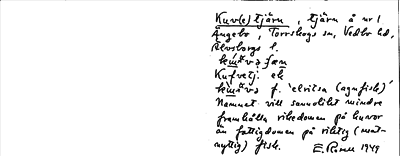 Kuv(e)tjärn, tjärn å nr 1
Ängebo, Torrskogs sn, Vedbo hd,
Älvsborgs l.
Kufvetj. ek
f. 'elritsa (agnfisk)'
Namnet vill sannolikt mindre
framhålla rikedomen på kuvor
än fattigdomen på riktig (mat-
nyttig) fisk. E. 1949